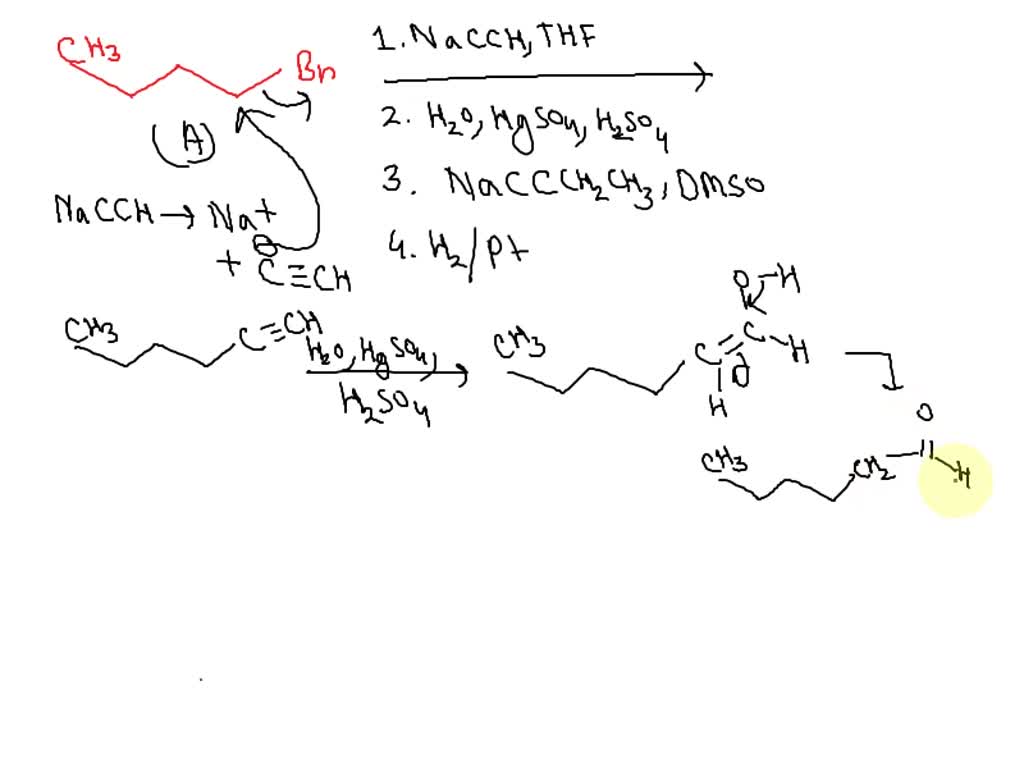 CH3
Br
(A)
1. NaCCH, THF
2. H2O, HgSO4, H2SO4
3. NaCCCH2CH3, DMSO
4. H2/Pt
NaCCH → Na+
+ ⊖C≡CH
CH3
C≡CH
H2O, HgSO4,
H2SO4
CH3
O-H
C=C-H
H
O
CH3
CH2
H